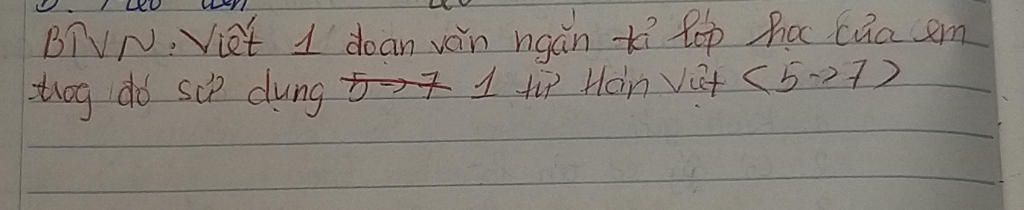 BTVN: Viết 1 đoạn văn ngắn tả lớp học của em
trog đó sử dụng 5->7 1 từ Hán Việt <5->7>